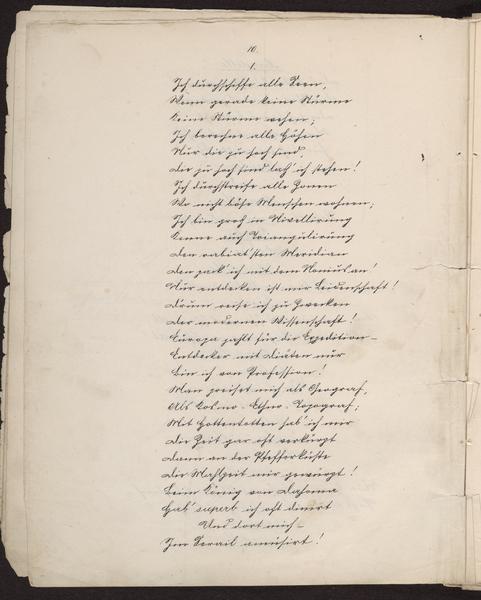 10.
1.
Ich durchschiffe alle Seen,
Wenn gerade keine Stürme
Keine Stürme wehen;
Ich berechne alle Höhen
Nur die zu hoch sind,
Die zu hoch sind laß' ich stehen!
Ich durchstreife alle Zonen
Wo nicht böse Menschen wohnen;
Ich bin groß in Nivellirung
Kenne auch Triangulirung
Den rabiat'sten Meridian
Den pack' ich mit dem Nonius an!
Nur entdecken ist mir Leidenschaft!
Drum reise ich zu Zwecken
Der modernen Wissenschaft!
Europa zahlt für die Expedition –
Entdecker mit Diäten nur
Bin ich von Profession!
Man preiset mich als Geograf,
Als Kosmo- Ethno- Topograf;
Mit Hottentotten hab' ich mir
Die Zeit gar oft verkürzt
Dann an der Pfefferküste
Die Mahlzeit mir gewürzt!
Beim König von Dahome
Hab' superb ich oft dinirt
Und dort mich –
Im Serail amüsirt!